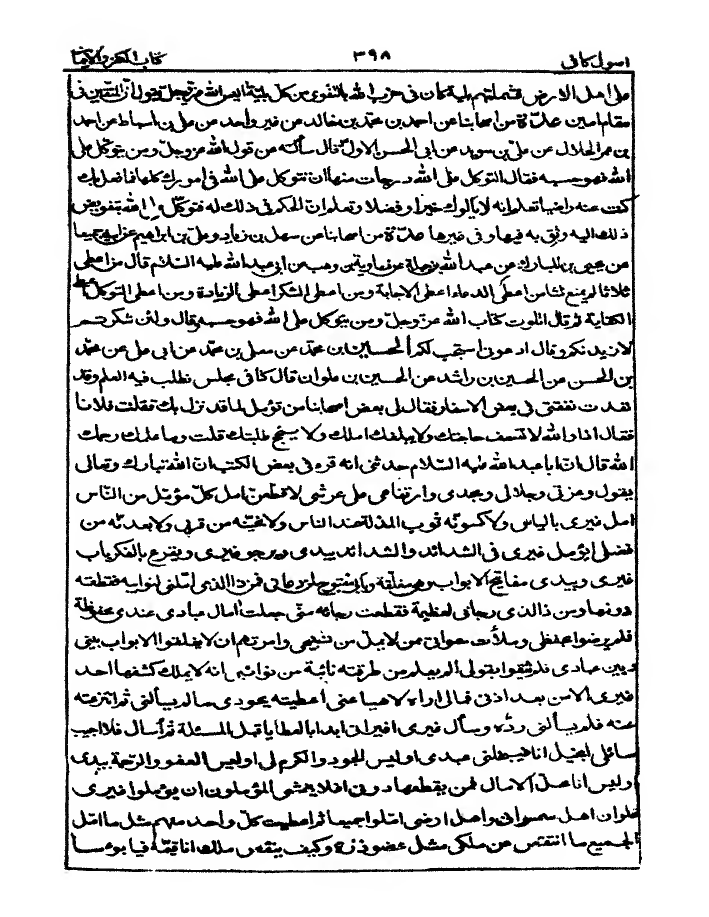 اصول کافی ٣٩٨ کتاب الکفر والایمان
علی اهل الارض فشملتهم بلیة کان فی حزب الله بالتقوی من کل بلیة الیس الله عزوجل یقول ان المتقین فی
مقام امین عدة من اصحابنا عن احمد بن محمد بن خالد عن غیر واحد عن علی بن اسباط عن احمد
بن عمر الحلال عن علی بن سوید عن ابی الحسن الاول قال سألته عن قول الله عزوجل ومن یتوکل علی
الله فهو حسبه فقال التوکل علی الله درجات منها ان تتوکل علی الله فی امورک کلها فما فعل بک
کنت عنه راضیا تعلم انه لا یألوک خیرا وفضلا وتعلم ان الحکم فی ذلک له فتوکل علی الله بتفویض
ذلک الیه وثق به فیها وفی غیرها عدة من اصحابنا عن سهل بن زیاد وعلی بن ابراهیم عن ابیه جمیعا
عن یحیی بن المبارک عن عبد الله بن جبلة عن معاویة بن وهب عن ابی عبد الله علیه السلام قال من اعطی
ثلاثا لم یمنع ثلثا من اعطی الدعاء اعطی الاجابة ومن اعطی الشکر اعطی الزیادة ومن اعطی التوکل اعطی
الکفایة ثم قال اتلوت کتاب الله عزوجل ومن یتوکل علی الله فهو حسبه وقال ولئن شکرتم
لازیدنکم وقال ادعونی استجب لکم الحسین بن محمد عن معلی بن محمد عن ابی علی عن محمد
بن الحسن عن الحسین بن راشد عن الحسین بن علوان قال کنا فی مجلس نطلب فیه العلم وقد
نفدت نفقتی فی بعض الاسفار فقال لی بعض اصحابنا من تؤمل لما قد نزل بک فقلت فلانا
فقال اذا والله لا تسعف حاجتک ولا یبلغک املک ولا ینجح طلبتک قلت وما علمک رحمک
الله قال ان ابا عبد الله علیه السلام حدثنی انه قرء فی بعض الکتب ان الله تبارک وتعالی
یقول وعزتی وجلالی ومجدی وارتفاعی علی عرشی لاقطعن امل کل مؤمل من الناس
امل غیری بالیاس ولاکسونه ثوب المذلة عند الناس ولانحینه من قربی ولابعدنه من
فضلی ایؤمل غیری فی الشدائد والشدائد بیدی ویرجو غیری ویقرع بالفکر باب
غیری وبیدی مفاتیح الابواب وهی مغلقة وبابی مفتوح لمن دعانی فمن ذا الذی املنی لنوائبه فقطعته
دونها ومن ذا الذی رجانی لعظیمة فقطعت رجاءه منی جعلت آمال عبادی عندی محفوظة
فلم یرضوا بحفظی وملأت سمواتی ممن لا یمل من تسبیحی وامرتهم ان لا یغلقوا الابواب بینی
وبین عبادی فلم یثقوا بقولی الم یعلم من طرقته نائبة من نوائبی انه لا یملک کشفها احد
غیری الا من بعد اذنی فمالی اراه لاهیا عنی اعطیته بجودی ما لم یسألنی ثم انتزعته
عنه فلم یسألنی رده وسأل غیری افیرانی ابدا بالعطایا قبل المسئلة ثم اسأل فلا اجیب
سائلی ابخیل انا فیبخلنی عبدی اولیس الجود والکرم لی اولیس العفو والرحمة بیدی
اولیس انا محل الآمال فمن یقطعها دونی افلا یخشی المؤملون ان یؤملوا غیری
فلو ان اهل سمواتی واهل ارضی املوا جمیعا ثم اعطیت کل واحد منهم مثل ما امل
الجمیع ما انتقص من ملکی مثل عضو ذرة وکیف ینقص ملک انا قیمه فیا بؤسا